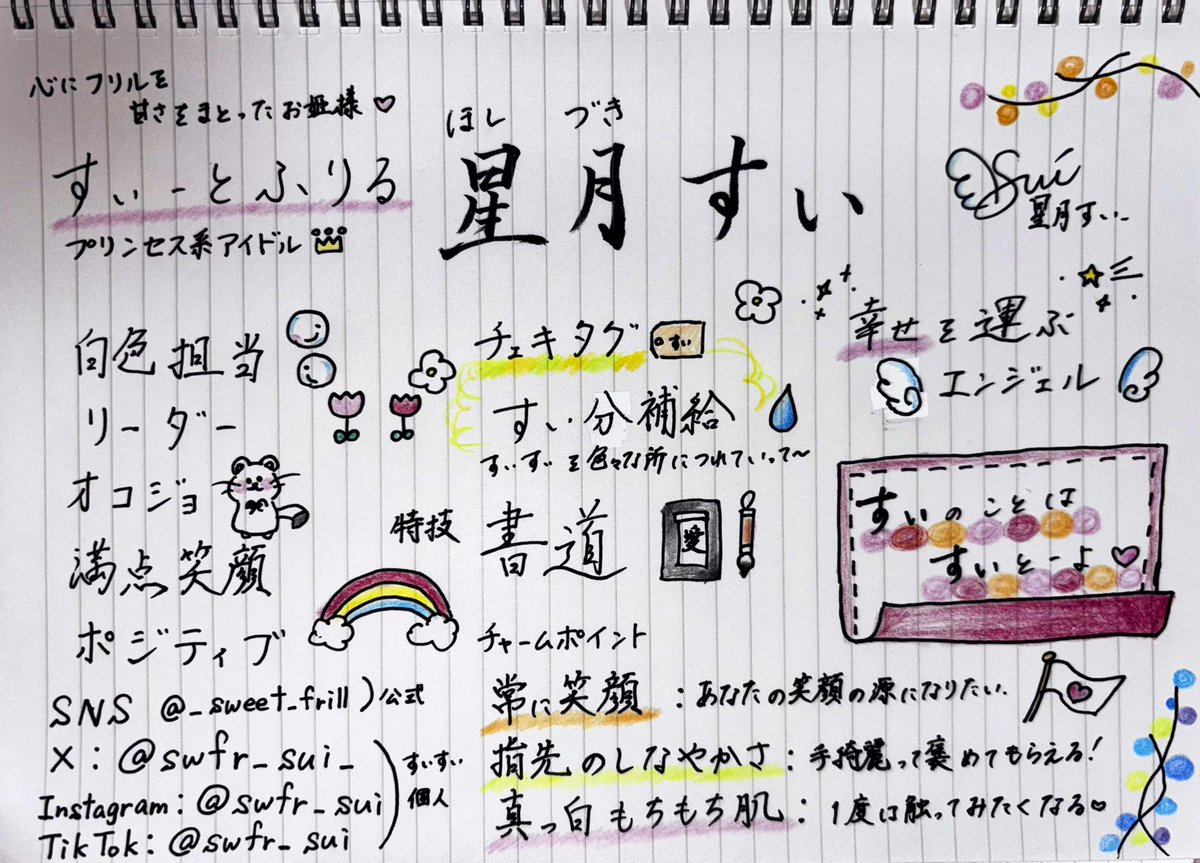 心にフリルを
甘さをまとったお姫様♡
すぃーとふりる
プリンセス系アイドル
ほし づき
星月すい
Sui
星月すい
白色担当
リーダー
オコジョ
満点笑顔
ポジティブ
チェキタグ
すい
すい分補給
すいすいを色々な所につれていって〜
特技
書道
愛
チャームポイント
幸せを運ぶ
エンジェル
すいのことは
すいとーよ♡
SNS @_sweet_frill)公式
X:@swfr_sui_
Instagram:@swfr_sui
TikTok:@swfr_sui
すいすい
個人
常に笑顔:あなたの笑顔の源になりたい.
指先のしなやかさ:手綺麗って褒めてもらえる!
真っ白もちもち肌:1度は触ってみたくなる♡